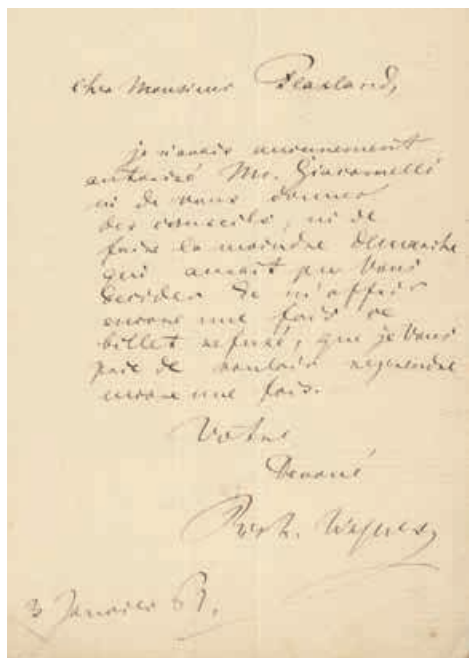 Cher Monsieur Flaxland,
je n'avais aucunement
autorisé Mr. Giacomelli
ni de vous donner
des conseils, ni de
faire la moindre démarche
qui aurait pu Vous
decider de m'offrir
encore une fois ce
billet refusé, que je Vous
prie de vouloir reprendre
encore une fois.
Votre
Devoué
Rich. Wagner
3 Janvier 61.